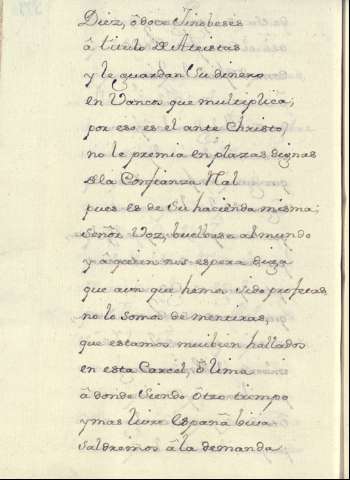 Diez, ô doce Jinobeses
â titulo de Ateistas
y le guardan su dinero
en Vancos que multiplica;
por eso es el ante Christo,
no le premia en plazas dignas
de la Confianza Rl
pues es de su hacienda misma;
Señor Voz, buelbase al mundo
y a quien nos espera diga
que aun que hemos sido profetas
no lo somos de mentiras,
que estamos mui bien hallados
en esta Carcel, ô lima
â donde siendo ôtro tiempo
y mas livre España viva
saldremos â la demanda